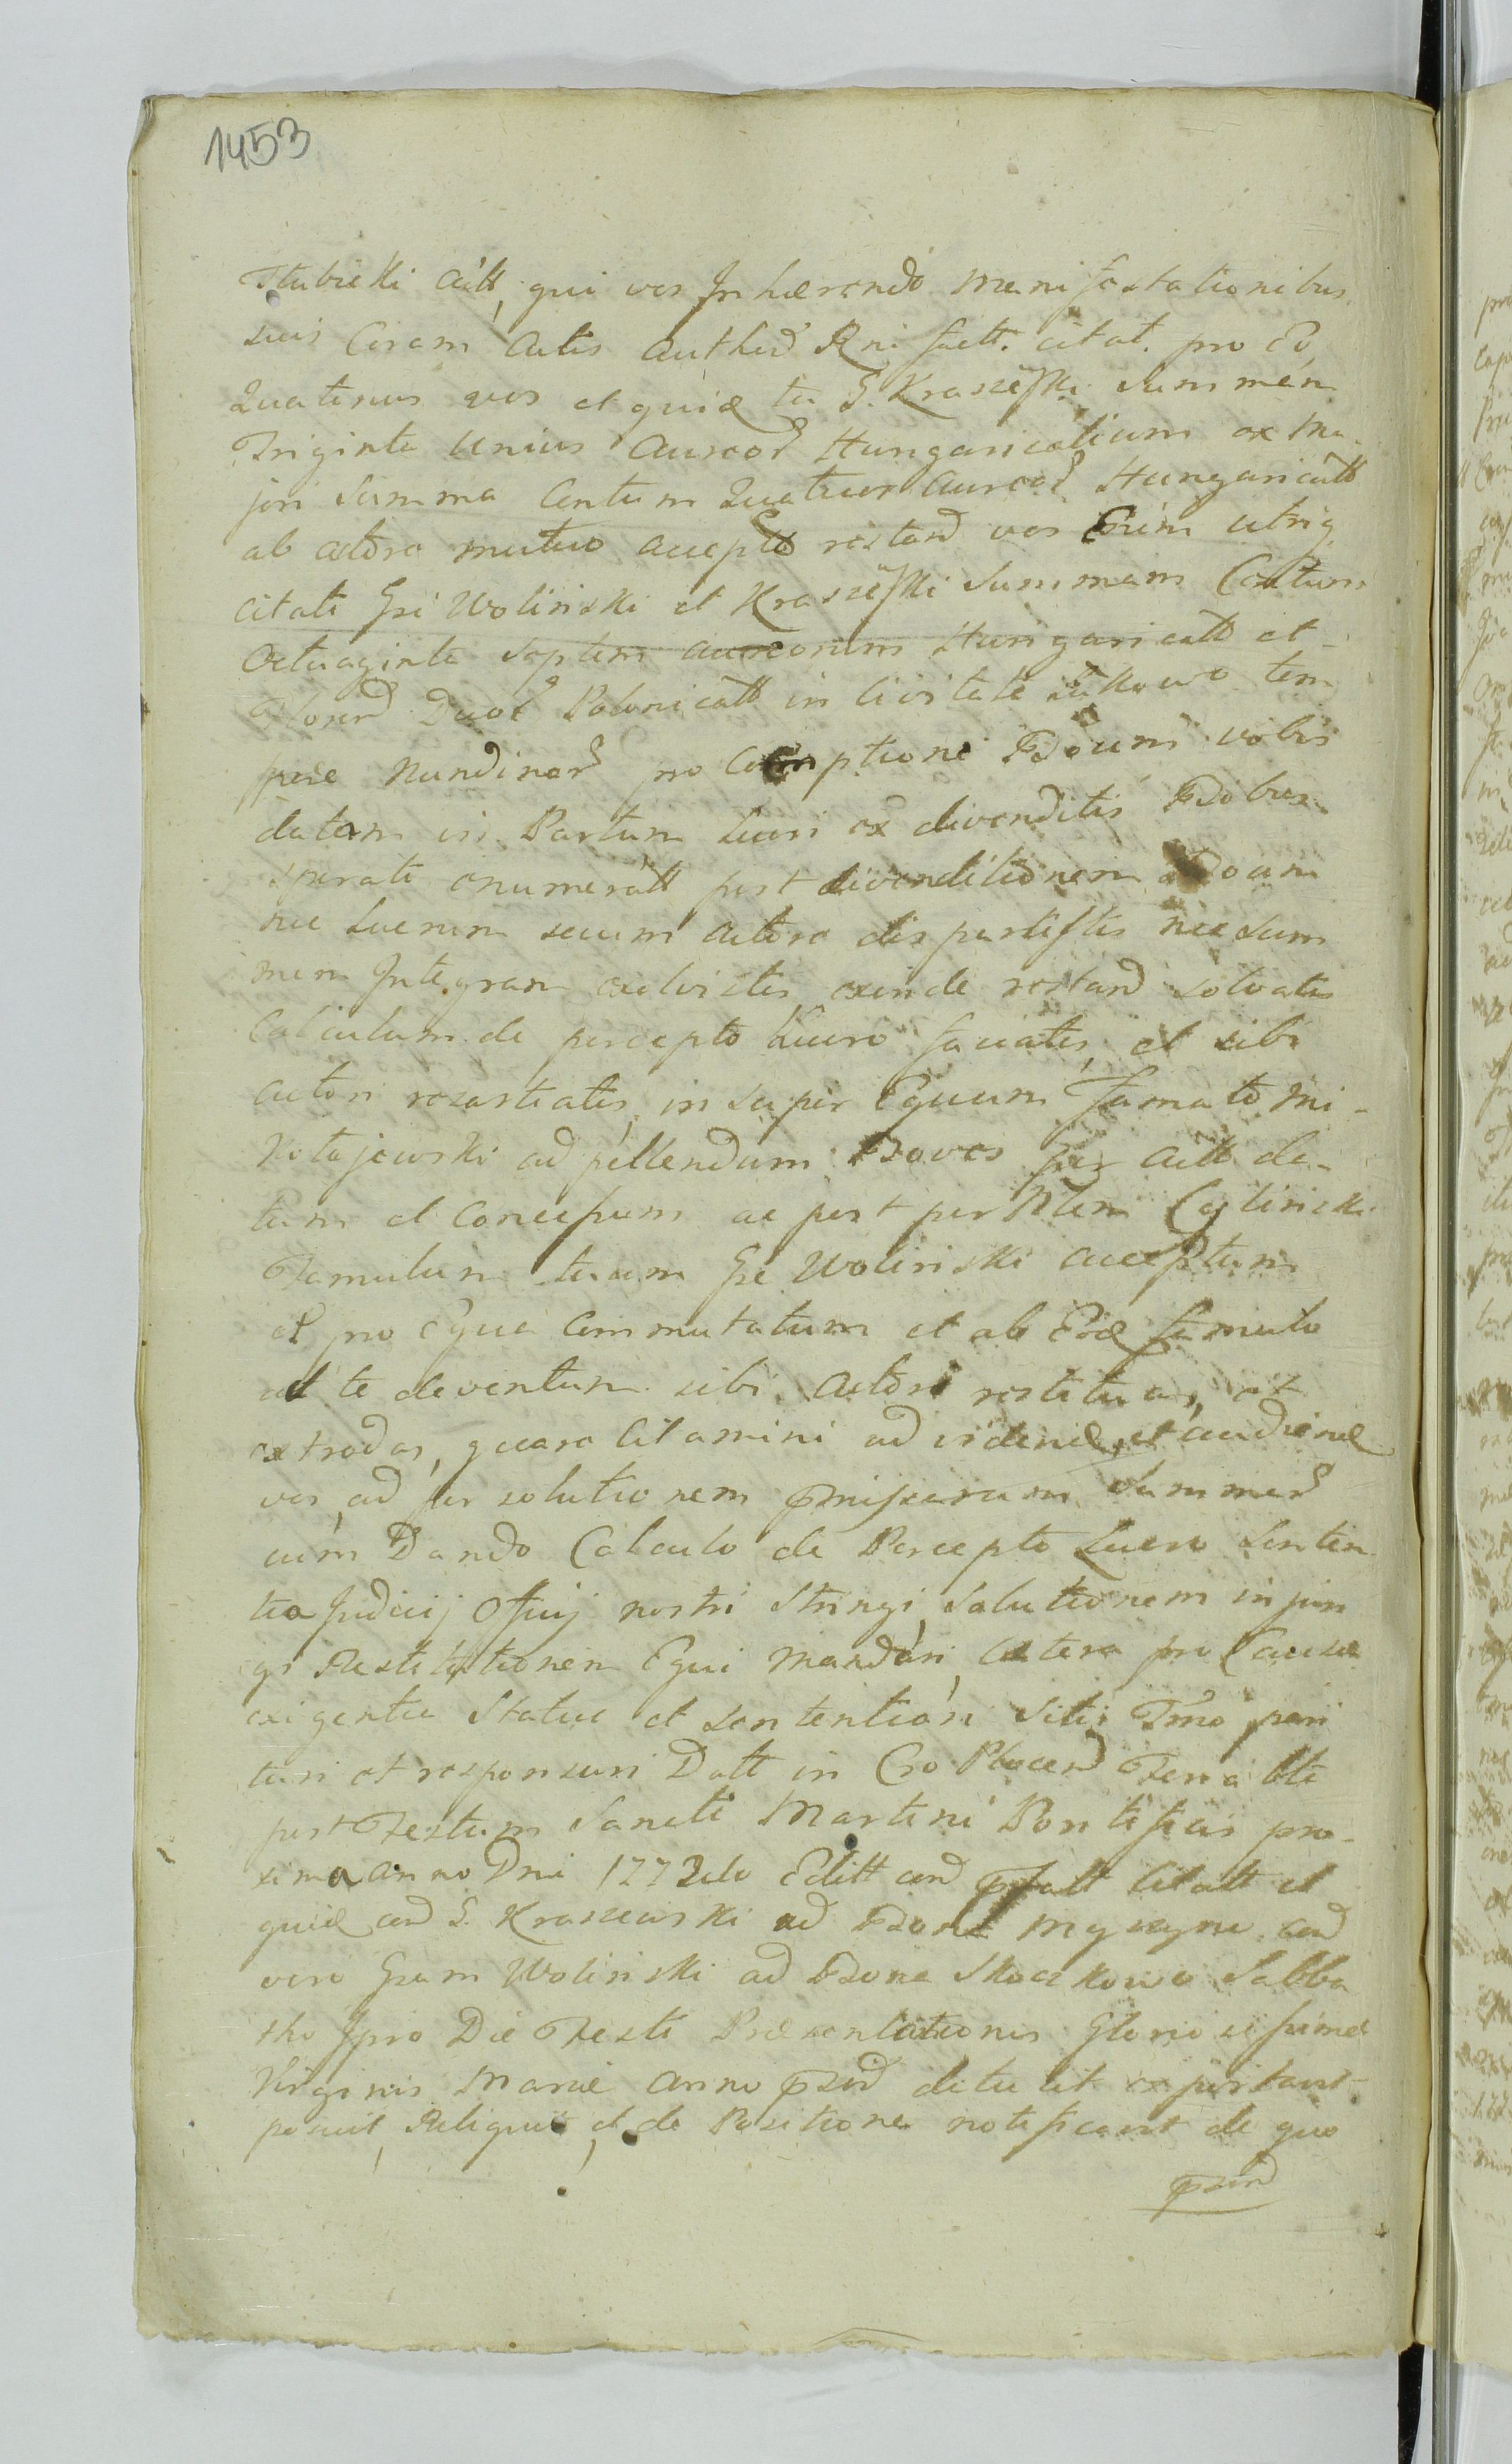 1453
Stubicki Actt, qui vos Inhaerendo Manifestationibus
suis Coram Actis Authend Rni factt. citat. pro Eo
Quatenus vos et quid tu G. Kraszeski Summam
Triginta Unius Aureor Hungaricalium ex Ma-
jori Summa Centum Quatuor Aureor Hungaricatt
ab Actore mutuo accepta restand vos Enim utriq
citati Gsi Wolinski et Kraszeski Summam Centum
Octuaginta Septem aureorum Hungaricatt et
Floren Duor Polonicatt in Civitate Łukowo tem
pore Nundinar pro Coemptione Boum vobis
datam in Partem Lucri ex divenditis Bobus
sperati enumeratt post divenditionem Boum
nec Lucrum secum Actore dispertistis nec Sum
mam Integram exolvistis exinde restand solvatis
Calculum de percepto Lucro faciatis, et sibi
Actori resartiatis, in super Equum Famato Mi-
kolajewski ad pellendum Boves per Actt da-
tum et Concessum ac post per Nlem Caslinski
Famulum tuum Gse Wolinski acceptum
et pro Equa Commutatum et ab Eod famulo
ad te deventum sibi Actori restituas, et
extradas, quare Citamini ad vidend et audiend
vos ad per solutionem pmissarum Summar
cum Dando Calculo de Percepto Lucro Senten
tia Judicij Officij nostri Stringi, Solutionem injun
gi Restitutionem Equi Mandari, Cetera pro Causae
exigentia Statui et Sententiari Sitis Tmo pari
turi et responsuri Datt in Cro Plocen Feria 4ta
post Festum Sancti Martini Pontificis pro-
xima Anno Dni 1772do Editt cod pfatt Citatt et
quid cod G. Kraszewski ad Bona Myszyno cod
vero Gsum Wolinski ad Bona Skoczkowo Sabba
tho Ipso Die Festi Praesentationis Gloriosissimae
Virginis Mariae Anno psnd detulit exportavit
posuit, Reliquit, et de Positione notificavit de quo
psnd